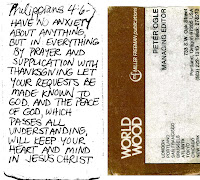 Philippians 4:6-7
HAVE NO ANXIETY
ABOUT ANYTHING,
BUT IN EVERYTHING
BY PRAYER AND
SUPPLICATION WITH
THANKSGIVING LET
YOUR REQUESTS BE
MADE KNOWN TO
GOD. AND THE PEACE
OF GOD, WHICH
PASSES ALL
UNDERSTANDING,
WILL KEEP YOUR
HEART AND MIND
IN JESUS CHRIST
WORLD
WOOD
MILLER FREEMAN PUBLICATIONS
PETER OGLE
MANAGING EDITOR